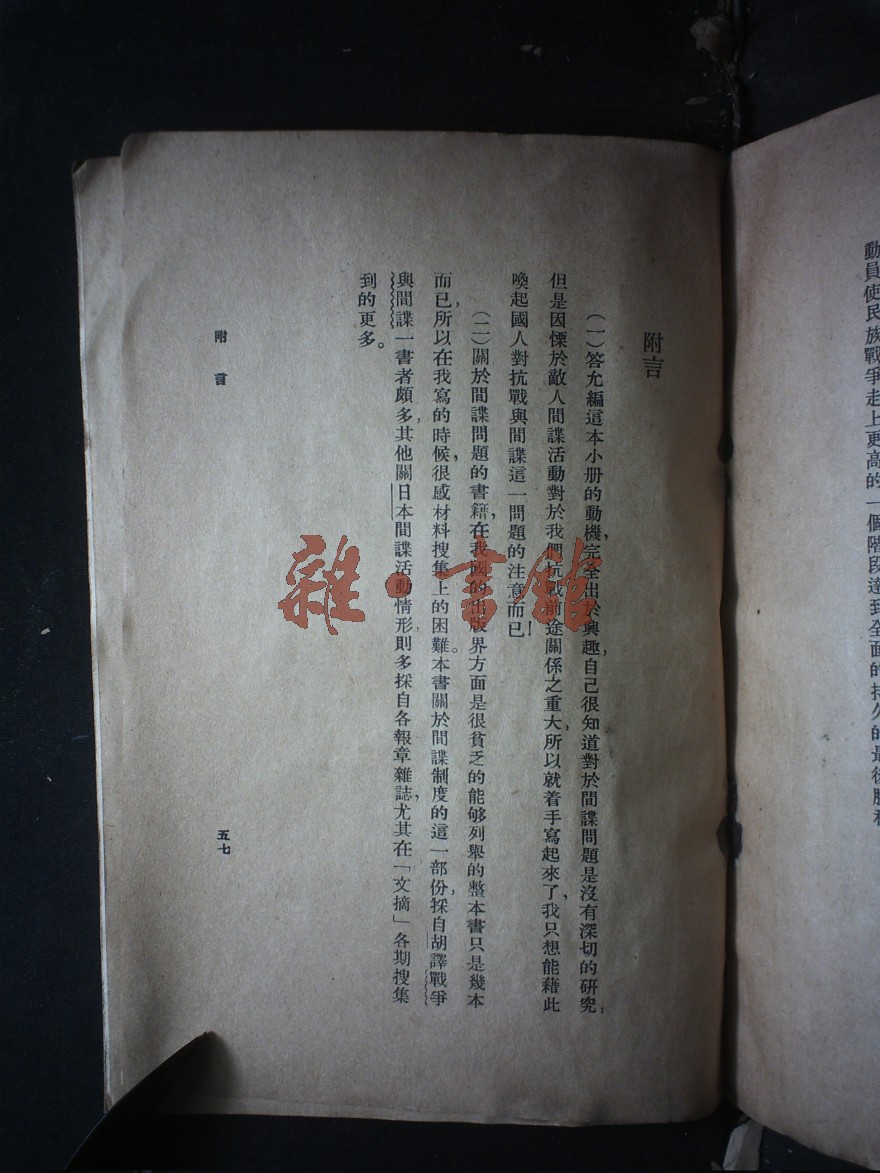 動員使民族戰爭走上更高的一個階段達到全面的持久的最後勝利
附言
（一）答允編這本小册的動機，完全出於興趣，自己很知道對於間諜問題是沒有深切的研究，
但是因懍於敵人間諜活動對於我們抗戰前途關係之重大，所以就着手寫起來了，我只想能藉此
喚起國人對抗戰與間諜這一問題的注意而已！
（二）關於間諜問題的書籍，在我國的出版界方面是很貧乏的能够列舉的整本書只是幾本
而已，所以在我寫的時候，很感材料搜集上的困難。本書關於間諜制度的這一部份，採自胡譯戰爭
與間諜一書者頗多，其他關日本間諜活動情形，則多採自各報章雜誌，尤其在「文摘」各期搜集
到的更多。
附言
五七
雜·書館